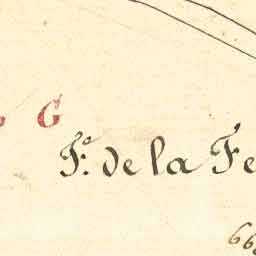 G
F.º de la Fe
66